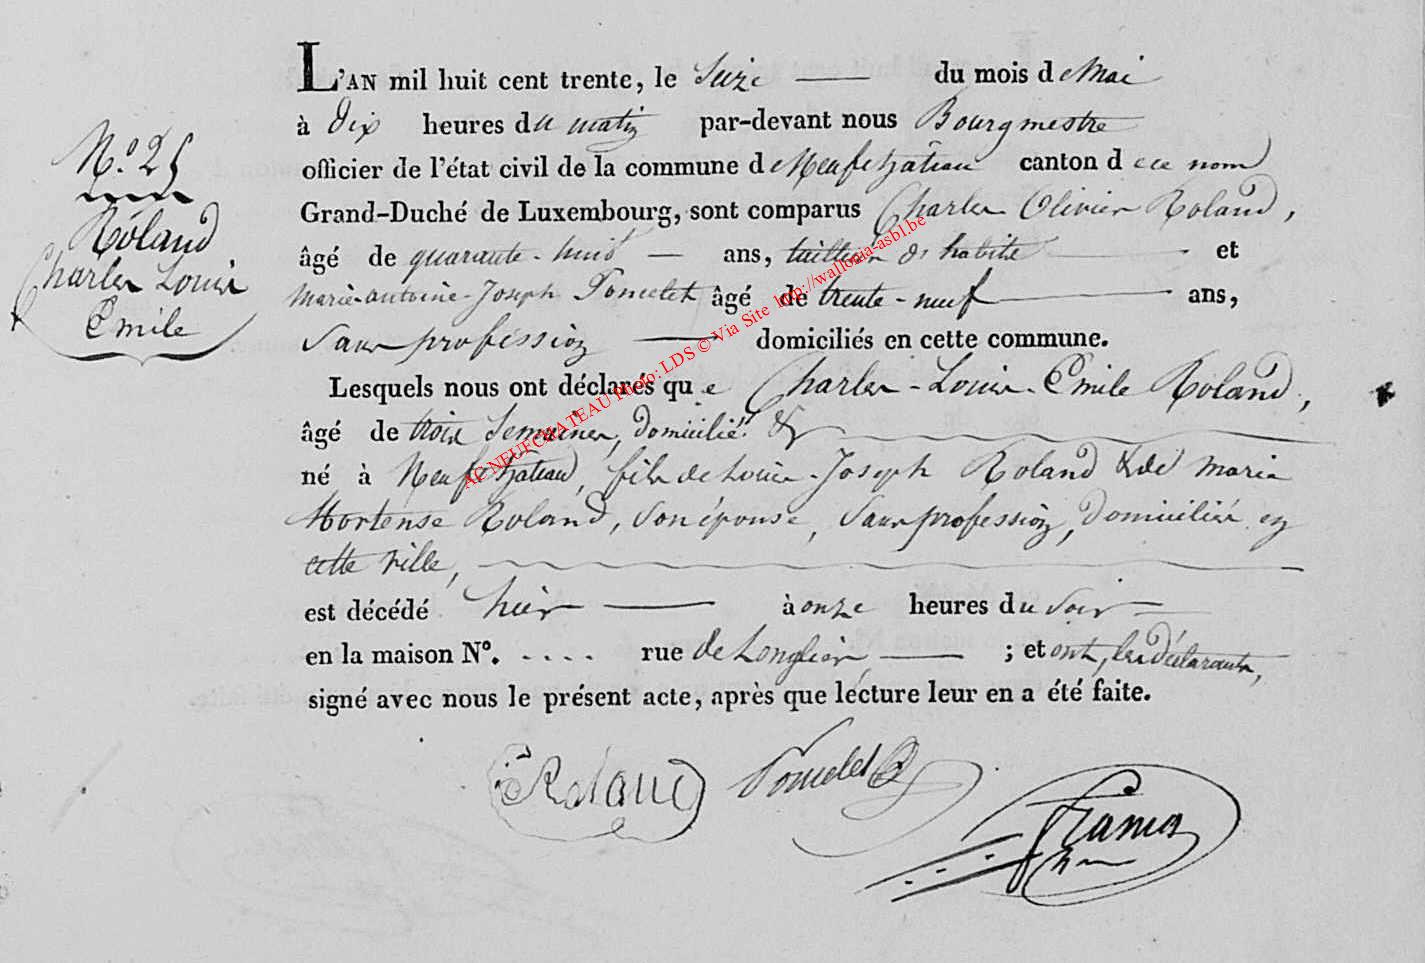 N.º 25
Roland
Charles Louis
Emile
L'AN mil huit cent trente, le Seize du mois de Mai
à dix heures du matin par-devant nous Bourgmestre
officier de l'état civil de la commune de Neufchâteau canton de ce nom
Grand-Duché de Luxembourg, sont comparus Charles Olivier Roland,
âgé de quarante-huit ans, tailleur de habits et
Marie-antoine-Joseph Poncelet âgé de trente-neuf ans,
Sans profession domiciliés en cette commune.
Lesquels nous ont déclarés que Charles-Louis-Emile Roland,
âgé de trois Semaines, domicilié &
né à Neufchateau, fils de Louis-Joseph Roland & de Maria
Hortense Roland, Son épouse, Sans profession, domiciliés en
cette ville,
est décédé hier à onze heures du Soir
en la maison N°. .... rue de Longlier ; et ont, les déclarants,
signé avec nous le présent acte, après que lecture leur en a été faite.
Roland Poncelet
AC NEUFCHATEAU Photo: LDS © Via Site http://wallonia-asbl.be